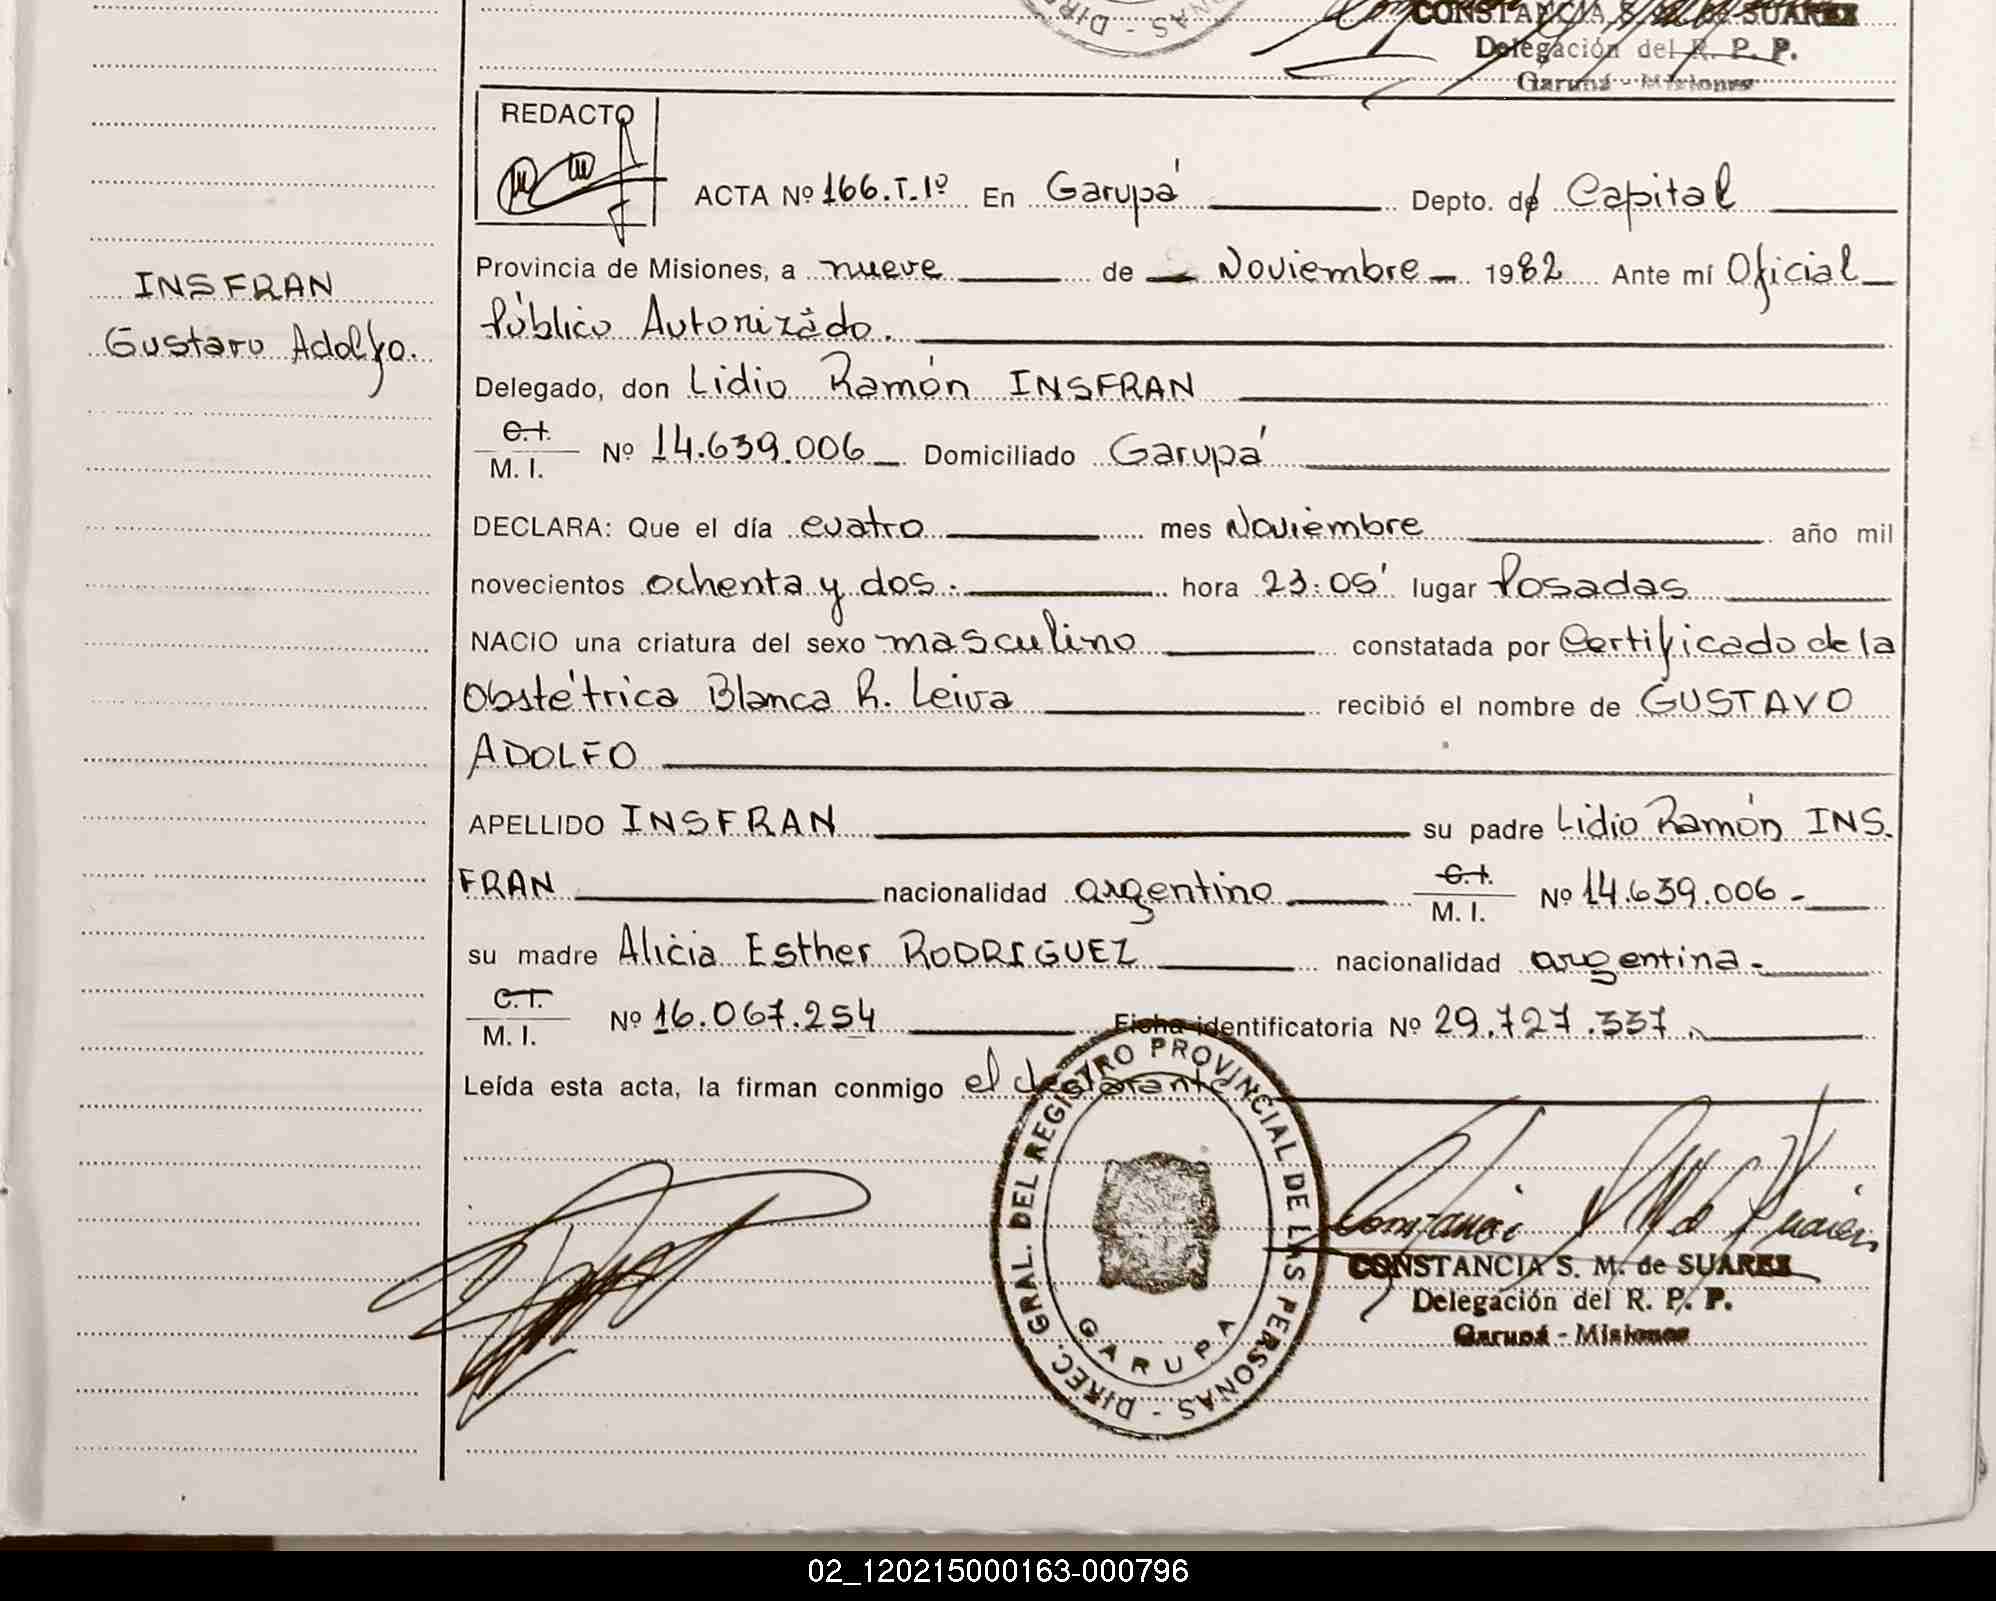 CONSTANCIA S. M. de SUAREZ
Delegación del R. P. P.
Garupá - Misiones
REDACTO
ACTA Nº 166.T.1º En Garupá Depto. de Capital
INSFRAN
Gustavo Adolfo.
Provincia de Misiones, a nueve de Noviembre 1982 Ante mí Oficial
Público Autorizado.
Delegado, don Lidio Ramón INSFRAN
C.I.
M. I. Nº 14.639.006 Domiciliado Garupá
DECLARA: Que el día cuatro mes Noviembre año mil
novecientos ochenta y dos. hora 23:05' lugar Posadas
NACIO una criatura del sexo masculino constatada por Certificado de la
Obstétrica Blanca R. Leiva recibió el nombre de GUSTAVO
ADOLFO
APELLIDO INSFRAN su padre Lidio Ramón INS.
FRAN nacionalidad argentino C.I. M. I. Nº 14.639.006.-
su madre Alicia Esther RODRIGUEZ nacionalidad argentina.-
C.I.
M. I. Nº 16.067.254 Ficha identificatoria Nº 29.727.337.
Leída esta acta, la firman conmigo el declarante
DIREC. GRAL. DEL REGISTRO PROVINCIAL DE LAS PERSONAS -
GARUPA
Constancia S M de Suarez
CONSTANCIA S. M. de SUAREZ
Delegación del R. P. P.
Garupá - Misiones
02_120215000163-000796